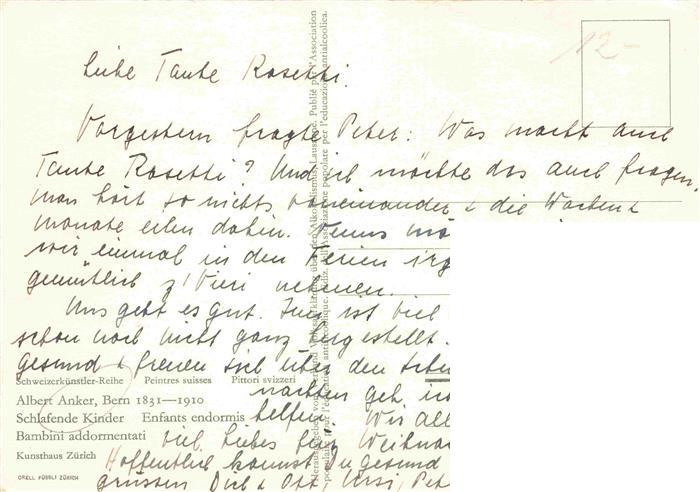 12.-
Liebe Tante Rosetti.
Vorgestern fragte Peter: Was macht auch
Tante Rosetti? Und ich möchte das auch fragen,
man hört so nichts voneinander & die Wochen &
monate eilen dahin. Wenns mö
wir einmal in den Ferien irg
gemütlich z'Vieri nehmen.
Uns geht es gut. ist viel
schon noch nicht ganz
Gesund & freuen sich über den
nachten geh.
helfen. Wir all
viel Liebes fürs Weihna
Hoffentlich kommst Du gesund
grüssen Dich & Otti, Ursi, Pet
Schweizerkünstler-Reihe Peintres suisses Pittori svizzeri
Albert Anker, Bern 1831—1910
Schlafende Kinder Enfants endormis
Bambini addormentati
Kunsthaus Zürich
ORELL FÜSSLI ZÜRICH
über den Alkoholismus, Lausanne. Publié par l'Association
popolare per l'educazione antialcoolica.